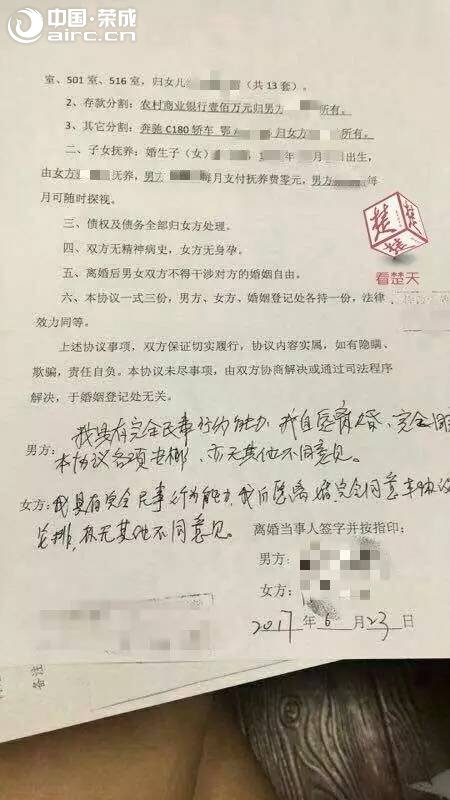 中国·荣成
airc.cn
室、501 室、516 室，归女儿（共 13 套）。
2、存款分割：农村商业银行壹佰万元归男方所有。
3、其它分割：奔驰 C180 轿车 鄂归女方所有。
二、子女抚养：婚生子（女）年月日出生，
由女方抚养，男方每月支付抚养费零元，男方每
月可随时探视。
三、债权及债务全部归女方处理。
四、双方无精神病史，女方无身孕。
五、离婚后男女双方不得干涉对方的婚姻自由。
六、本协议一式三份，男方、女方、婚姻登记处各持一份，法律
效力同等。
楚楚
看楚天
上述协议事项，双方保证切实履行，协议内容实属，如有隐瞒、
欺骗，责任自负。本协议未尽事项，由双方协商解决或通过司法程序
解决，于婚姻登记处无关。
男方：我具有完全民事行为能力，我自愿离婚，完全同
本协议各项安排，亦无其他不同意见。
女方：我具有完全民事行为能力，我自愿离婚完全同意本协议
安排，亦无其他不同意见。
离婚当事人签字并按指印：
男方：
女方：
2017年6月23日
备注